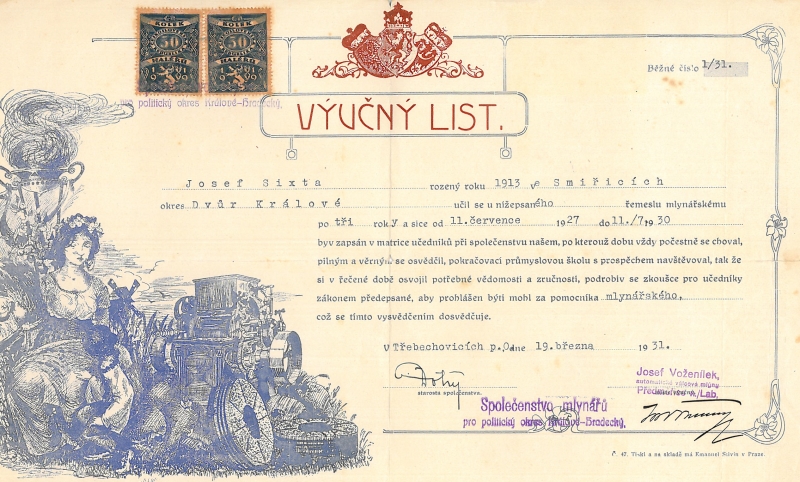 KOLEK KOLEK
50 50
HALÉŘŮ HALÉŘŮ
Běžné číslo 1/31.
pro politický okres Králové-Hradecký,
VÝUČNÝ LIST.
Josef Sixta rozený roku 1913 ve Smiřicích
okres Dvůr Králové učil se u nížepsaného řemeslu mlynářskému
po tři roky a sice od 11.července 1927 do 11./7.1930
byv zapsán v matrice učedníků při společenstvu našem, po kterouž dobu vždy počestně se choval,
pilným a věrným se osvědčil, pokračovací průmyslovou školu s prospěchem navštěvoval, tak že
si v řečené době osvojil potřebné vědomosti a zručnosti, podrobiv se zkoušce pro učedníky
zákonem předepsané, aby prohlášen býti mohl za pomocníka mlynářského,
což se tímto vysvědčením dosvědčuje.
V Třebechovicích p.O. dne 19.března 1931.
starosta společenstva.
Josef Voženílek,
automatické válcové mlýny
Společenstvo mlynářů
pro politický okres Králové-Hradecký,
Č. 47. Tiskl a na skladě má Emanuel Stivín v Praze.